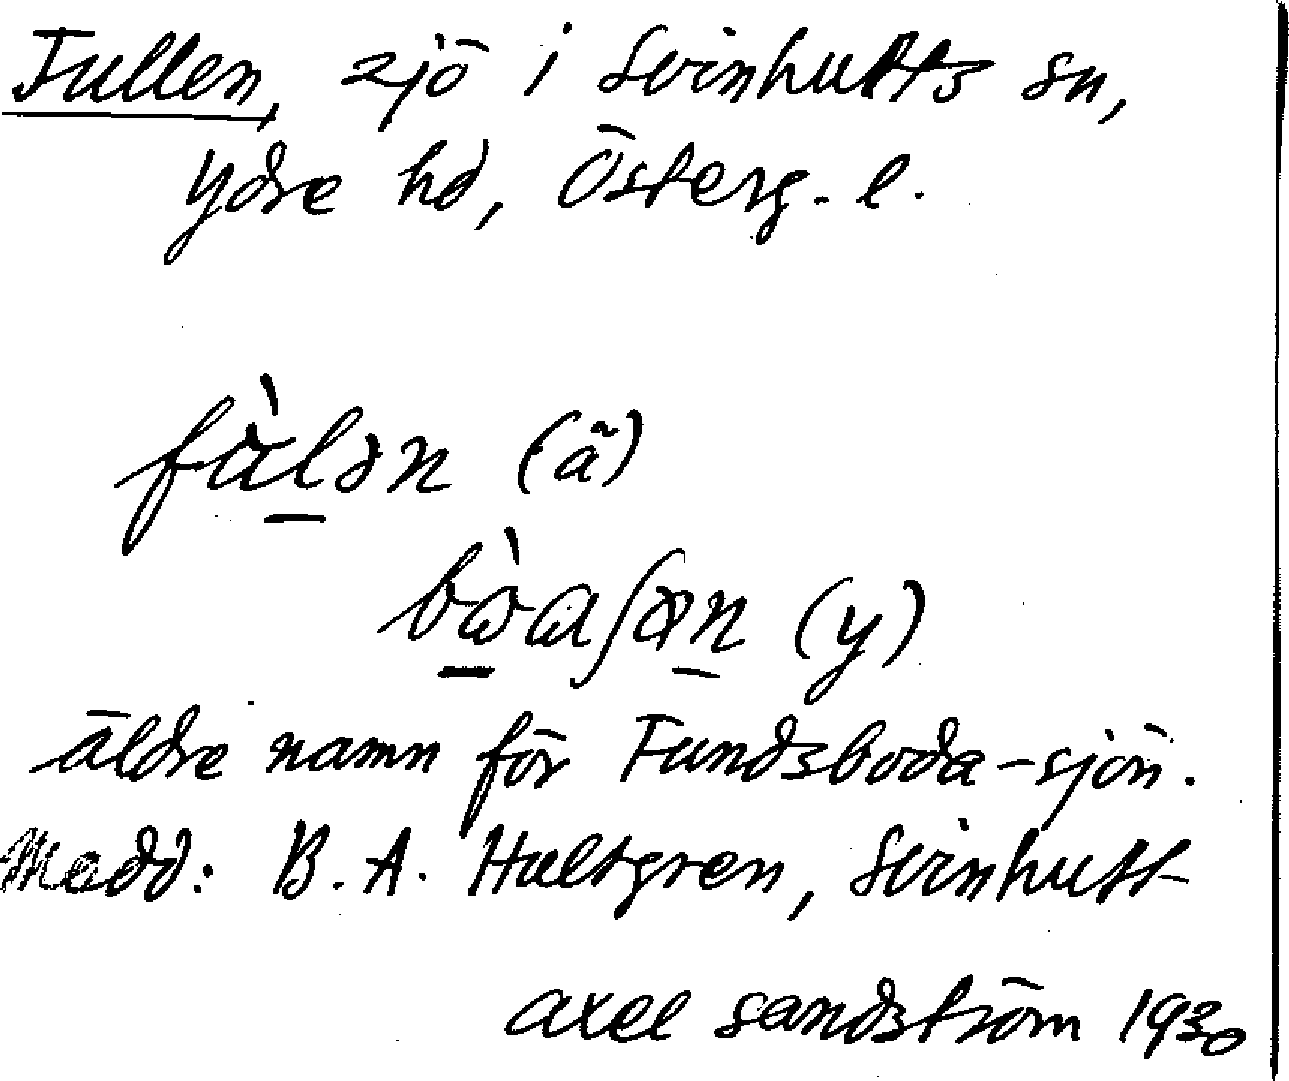 Fullen, sjö i Svinhults sn,
Ydre hd, Österg. l.
fùlən (ã)
äldre namn för Fundsboda-sjön.
Medd: B. A. Hultgren, Svinhult
Axel Sandström 1930